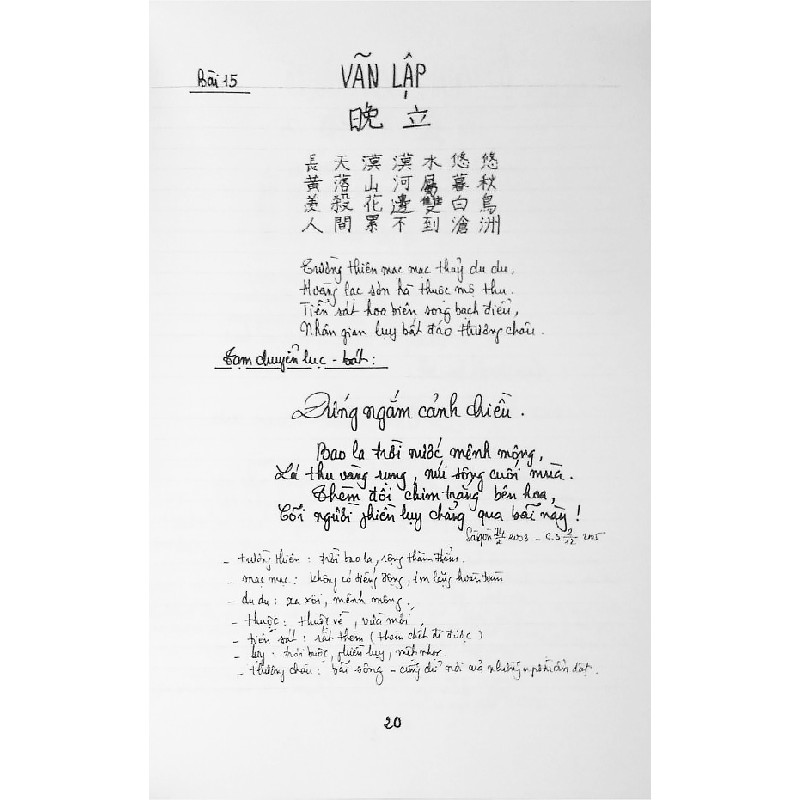 Bài 15
VÃN LẬP
晚 立
長 天 漠 漠 水 悠 悠
黃 落 山 河 屬 暮 秋
羨 殺 花 邊 雙 白 鳥
人 間 累 不 到 滄 洲
Trường thiên mạc mạc thủy du du.
Hoàng lạc sơn hà thuộc mộ thu.
Tiễn sát hoa biên song bạch điểu,
Nhân gian lụy bất đáo thương châu.
Tạm chuyển lục - bát:
Đứng ngắm cảnh chiều.
Bao la trời nước mênh mông,
Lá thu vàng rụng, núi sông cuối mùa.
Thèm đôi chim trắng bên hoa,
Cõi người phiền lụy chẳng qua bãi này!
Saigon 2003 - C.S 2005
- trường thiên: trời bao la, rộng thăm thẳm.
- mạc mạc: không có tiếng động, im lặng hoàn toàn
- du du: xa xôi, mênh mông,
- thuộc: thuộc về, vừa mới,
- tiễn sát: rất thèm (thèm chết đi được)
- lụy: trói buộc, phiền lụy, mệt nhọc
- thương châu: bãi sông - cũng để nói về những nơi ẩn dật.
20